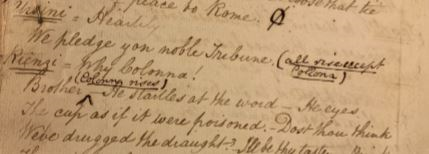 place to Rome.
Ursini = Heartily
We pledge you noble Tribune. (all rise except Colonna)
Rienzi = Why Colonna!
(Colonna rises)
Brother - He startles at the word - He eyes
The cup as if it were poisoned. - Dost thou think
We've drugged the draught? I'll be thy taster